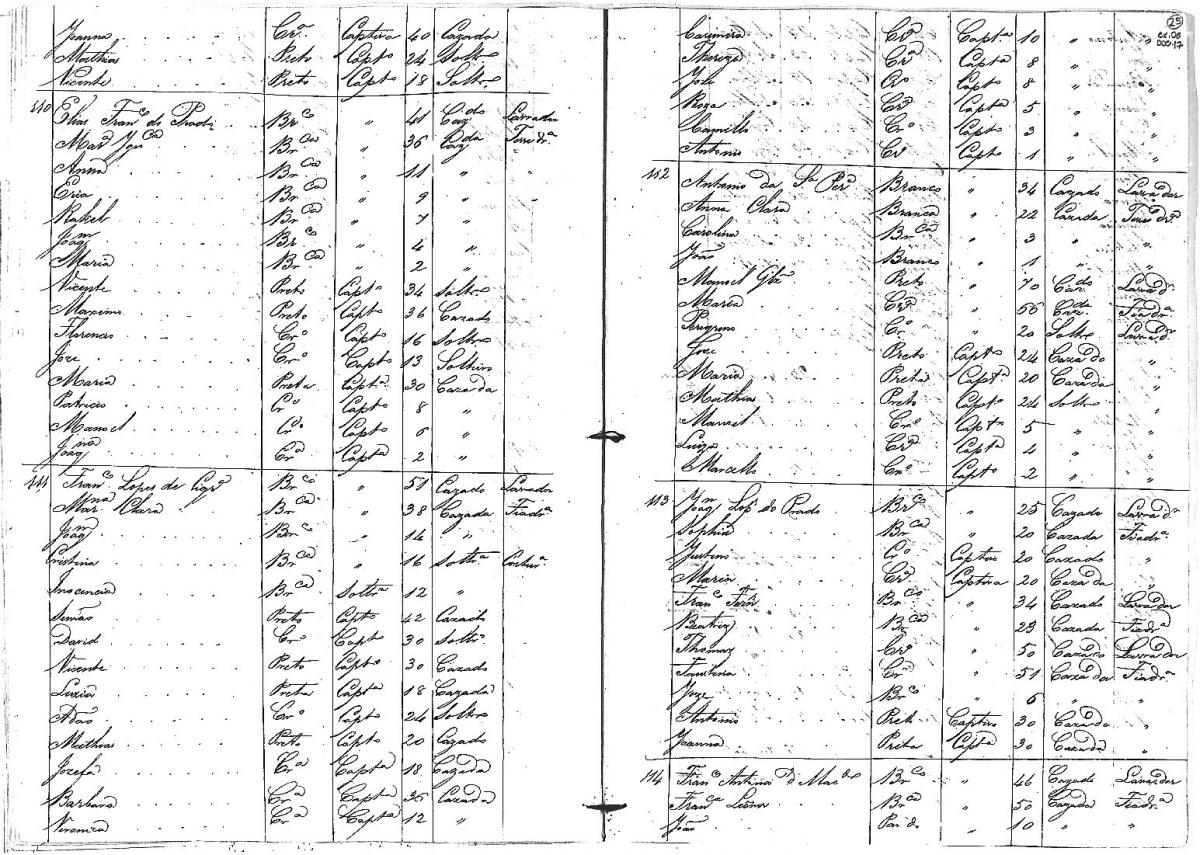 Joanna Crª Captiva 40 Cazada
Mathias Preto Captº 24 Soltrº
Vicente Preto Captº 18 Soltrº
110 Elias Francº do Prado Brcº " 41 Cazdo Lavrador
Marª Brca " 36 Cazda
Anna Brca " 11 "
Brca " 9 "
Rakel Brca " 7 "
Joaqm Brcº " 4 "
Maria Brca " 2 "
Vicente Preto Captº 34 Soltrº
Maximo Preto Captº 36 Cazado
Florencio Crº Captº 16 Soltrº
Joze Crº Captº 13 Solteiro
Maria Preta Captª 30 Cazada
Patricio Crº Captº 8 "
Manoel Crº Captº 6 "
Joaqna Crª Captª 2 "
111 Francº Lopes de Brcº " 51 Cazado Lavrador
Marna Clara Brca " 38 Cazada Fiadrª
Joaqm Brcº " 14 "
Cristina Brca " 16 Soltrª
Inocencia Brca Soltrª 12 "
Simão Preto Captº 42 Cazado
David Crº Captº 30 Soltrº
Vicente Preto Captº 30 Cazado
Luzia Preta Captª 18 Cazada
Adão Crº Captº 24 Soltrº
Mathias Preto Captº 20 Cazado
Jozefa Crª Captª 18 Cazada
Barbara Crª Captª 36 Cazada
Veronica Crª Captª 12 "
25
Cazemiro Crº Captº 10 " "
Thereza Crª Captª 8 " "
João Crº Captº 8 " "
Roza Crª Captª 5 " "
Camillo Crº Captº 3 " "
Antonio Crº Captº 1 " "
112 Antonio da Sª Perª Branco " 34 Cazado Lavrador
Anna Clara Branca " 22 Cazada
Carolina Brca " 3 " "
João Branco " 1 " "
Manoel Preto " 70 Cazdo Lavradr
Maria Crª " 56 Cazda Fiadrª
Peregrino Crº " 20 Soltrº Lavradr
Joze Preto Captº 24 Cazado "
Maria Preta Captª 20 Cazada "
Mathias Preto Captº 24 Soltrº "
Manoel Crº Captº 5 " "
Luiza Crª Captª 4 " "
Marcello Crº Captº 2 " "
113 Joaqm Lops do Prado Brcº " 25 Cazado Lavradr
Sophia Brca " 20 Cazada Fiadrª
Justino Crº Captivo 20 Cazado "
Maria Crª Captiva 20 Cazada "
Francº Brcº " 34 Cazado Lavrador
Beatriz Brca " 29 Cazada Fiadrª
Thomaz Crº " 50 Cazado Lavrador
Faustina Crª " 51 Cazada Fiadrª
Joze Brcº " 6 "
Antonio Preto Captivo 30 Cazado "
Joanna Preta Captª 30 Cazada "
114 Francº Antonio d Brcº " 46 Cazado Lavrador
Francª Brca " 50 Cazada Fiadrª
João " 10 " "